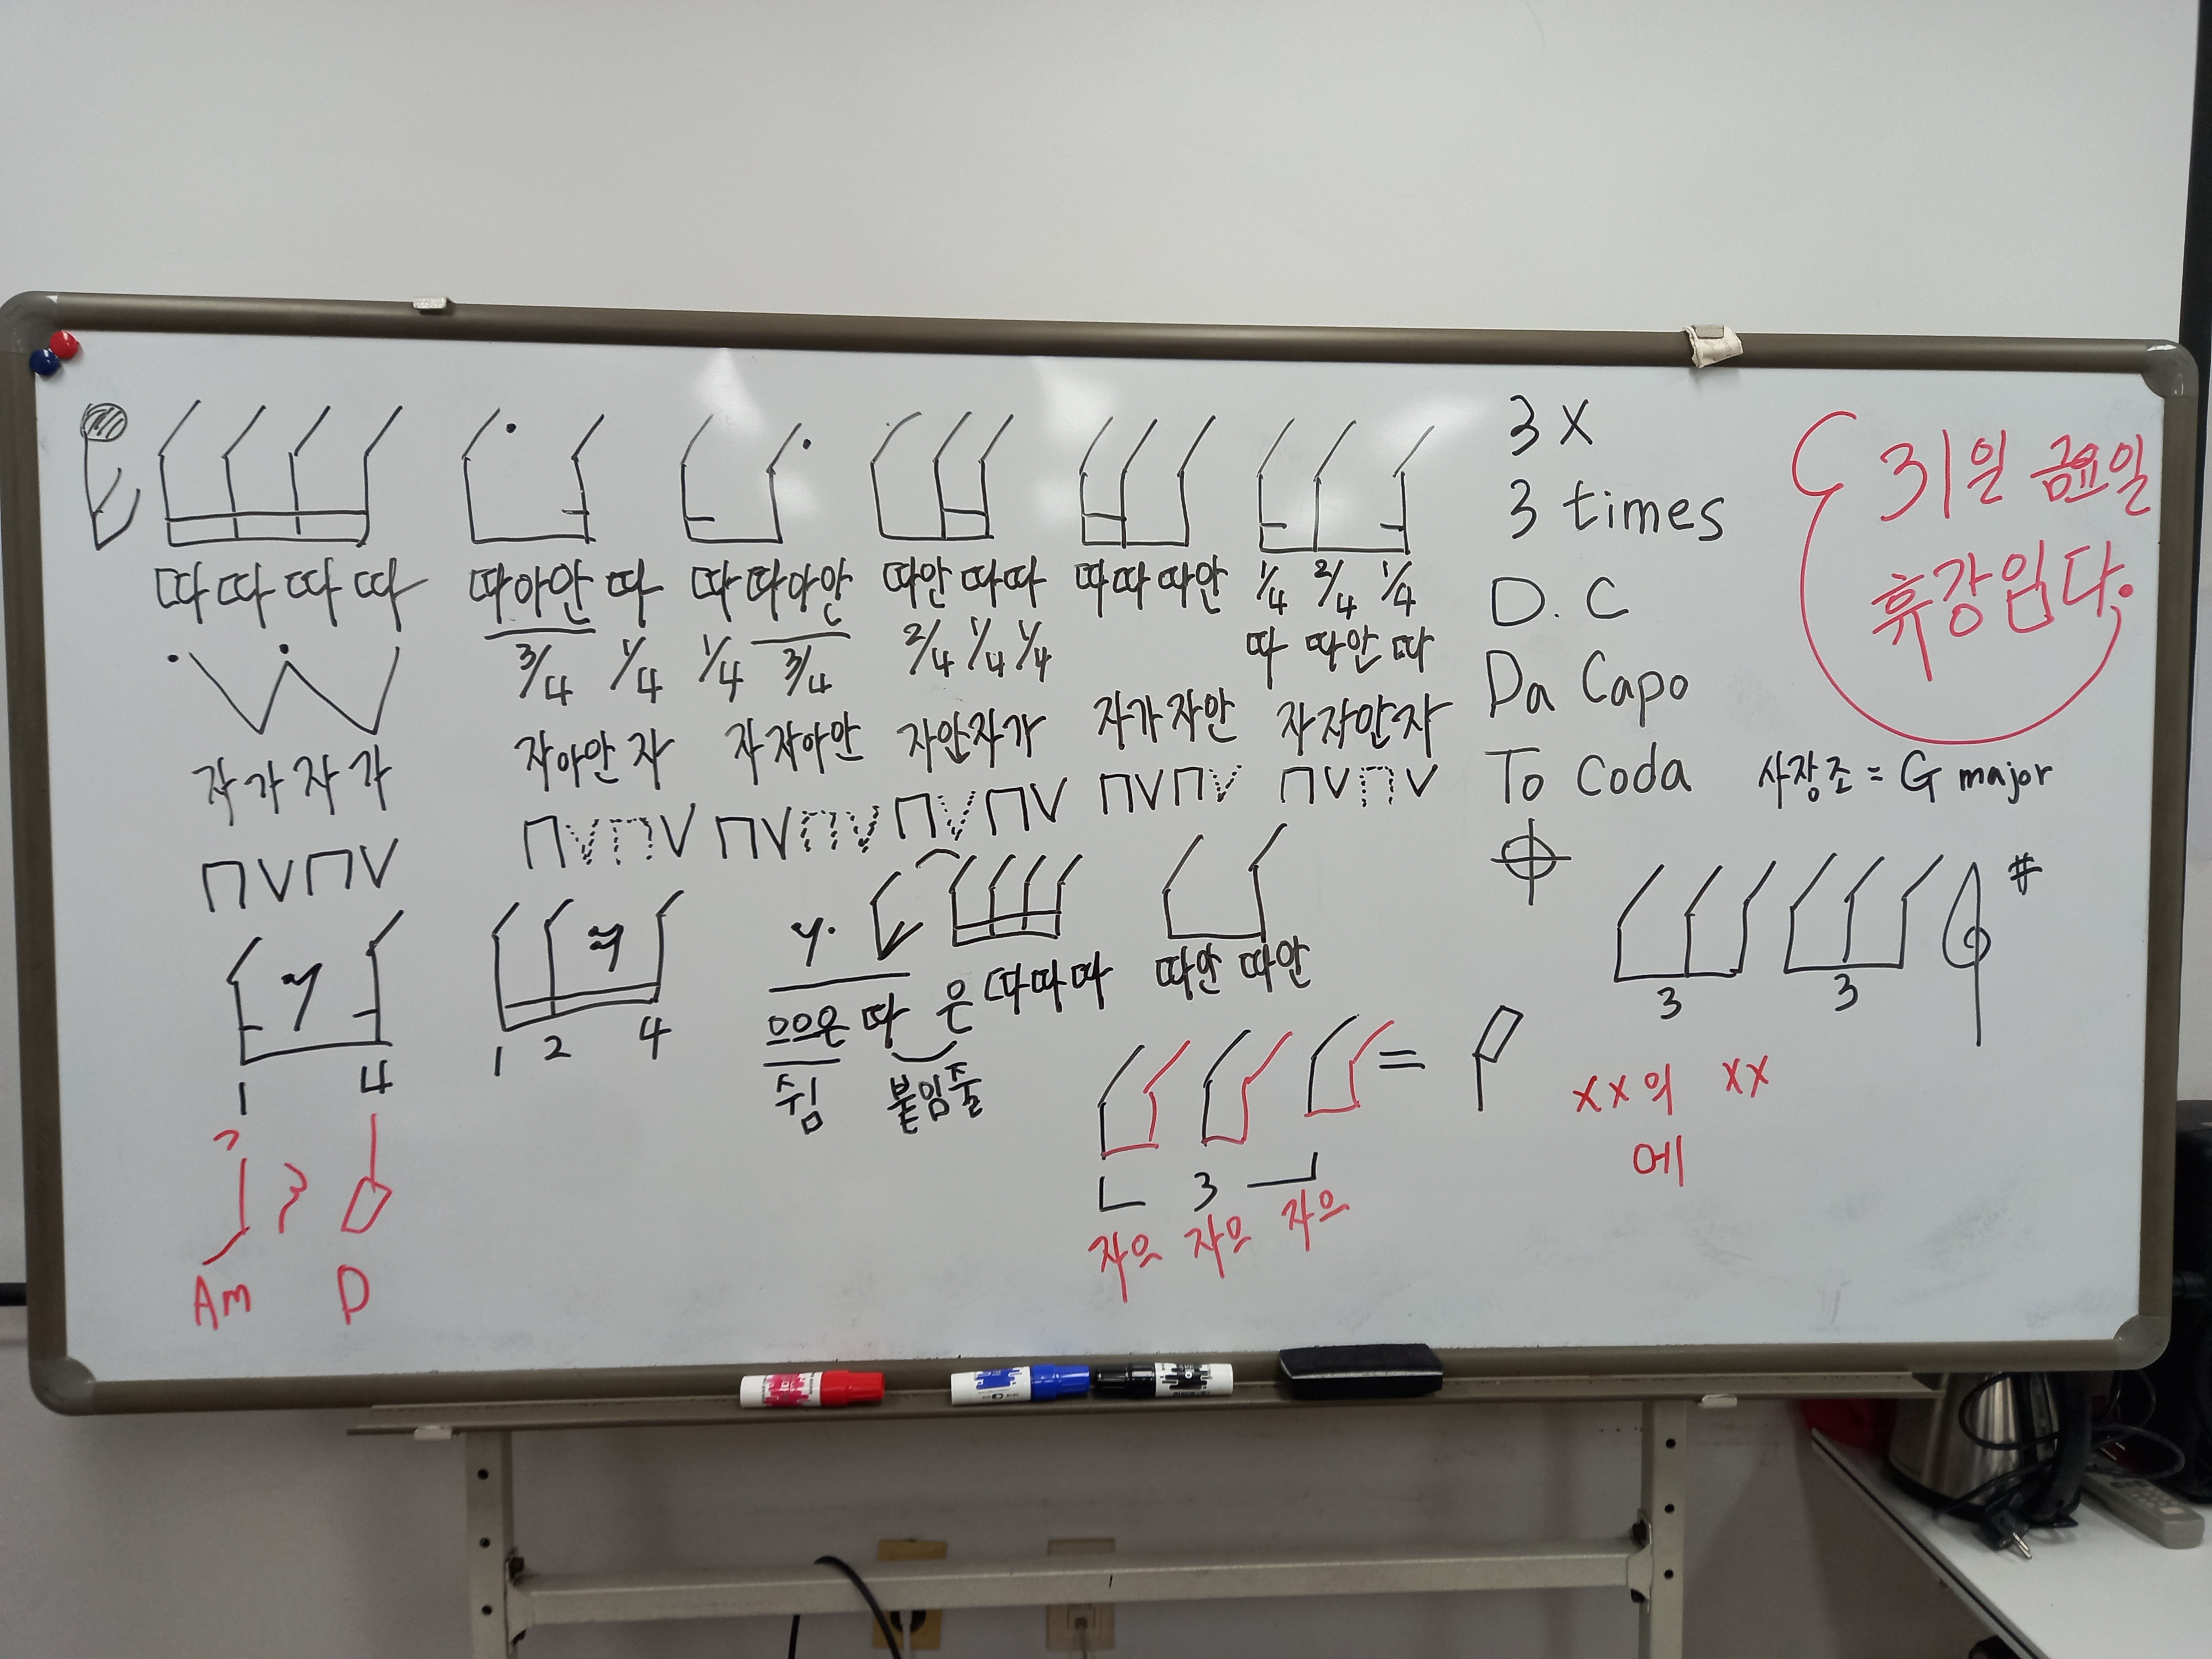 따따따따 따아안 따 따 따아안 따안 따따 따따 따안 1/4 2/4 1/4
3/4 1/4 1/4 3/4 2/4 1/4 1/4 따 따안 따
자가자가 자아안 자 자 자아안 자안자가 자가자안 자자안자
1 4
1 2 4
으으은 따 은 따따따 따안 따안
쉼 붙임줄
Am D
3
자으 자으 자으
=
3 X
3 times
D.C
Da Capo
To Coda
31일 금요일
휴강입니다.
사장조 = G major
#
3 3
xx의 xx
에